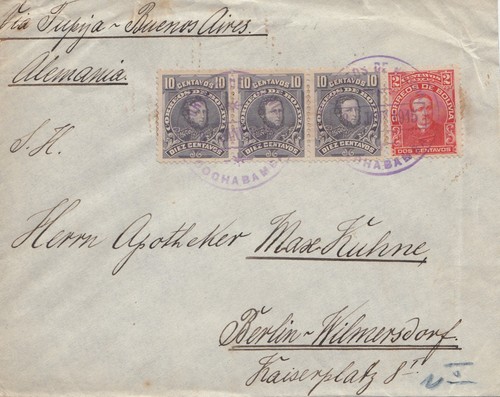 Via Tupija - Buenos Aires.
Alemania.
10 CENTAVOS 10
CORREOS DE BOLIVIA
DIEZ CENTAVOS
10 CENTAVOS 10
CORREOS DE BOLIVIA
DIEZ CENTAVOS
10 CENTAVOS 10
CORREOS DE BOLIVIA
DIEZ CENTAVOS
2 CENTAVOS 2
CORREOS DE BOLIVIA
DOS CENTAVOS
COCHABAMBA
COCHABAMBA
S. H.
Herrn Apotheker Max Kuhne,
Berlin - Wilmersdorf.
Kaiserplatz 8